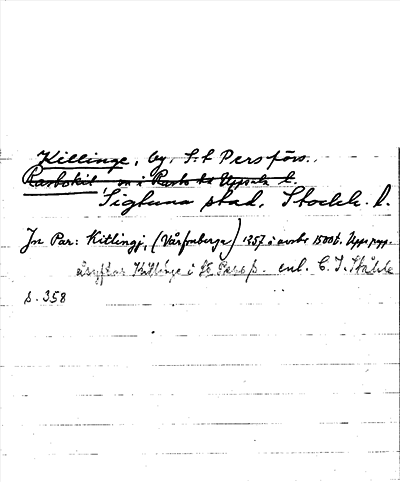 Killinge, by, S:t Pers förs.
Rasbokil sn i Rasbo hd Uppsala l.
Sigtuna stad, Stockh. l.
In Par: Kitlingj, (Vårfruberga) 1257 i avskr 1500t. Upps
åsyftar Killinge i St Persf. enl. C. I. Ståhle
s. 358